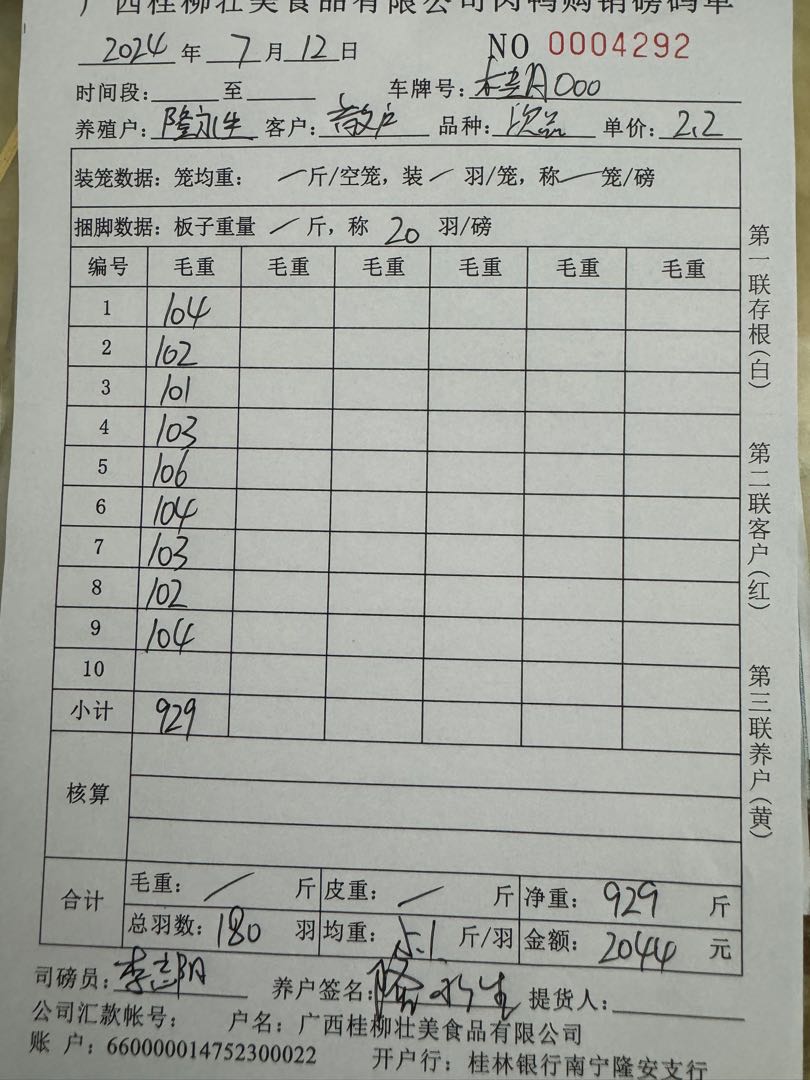 广西桂柳壮美食品有限公司肉鸭购销磅码单
2024 年 7 月 12 日 NO 0004292
时间段: 至 车牌号: 桂A000
养殖户: 隆永生 客户: 散户 品种: 次品 单价: 2.2
装笼数据: 笼均重: 斤/空笼, 装 羽/笼, 称 笼/磅
捆脚数据: 板子重量 / 斤, 称 20 羽/磅
编号 毛重 毛重 毛重 毛重 毛重 毛重
1 104
2 102
3 101
4 103
5 106
6 104
7 103
8 102
9 104
10
小计 929
核算
合计 毛重: / 斤 皮重: / 斤 净重: 929 斤
总羽数: 180 羽 均重: 5.1 斤/羽 金额: 2044 元
司磅员: 养户签名: 隆永生 提货人:
公司汇款帐号: 户名: 广西桂柳壮美食品有限公司
账 户: 660000014752300022 开户行: 桂林银行南宁隆安支行
第一联存根(白) 第二联客户(红) 第三联养户(黄)